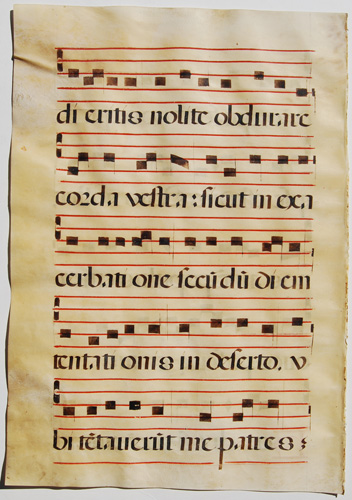 di eritis nolite obdurare
corda vestra : sicut in exa
cerbati one secũ dũ di em
tentati onis in deserto. v
bi tẽtaverũt me patres :